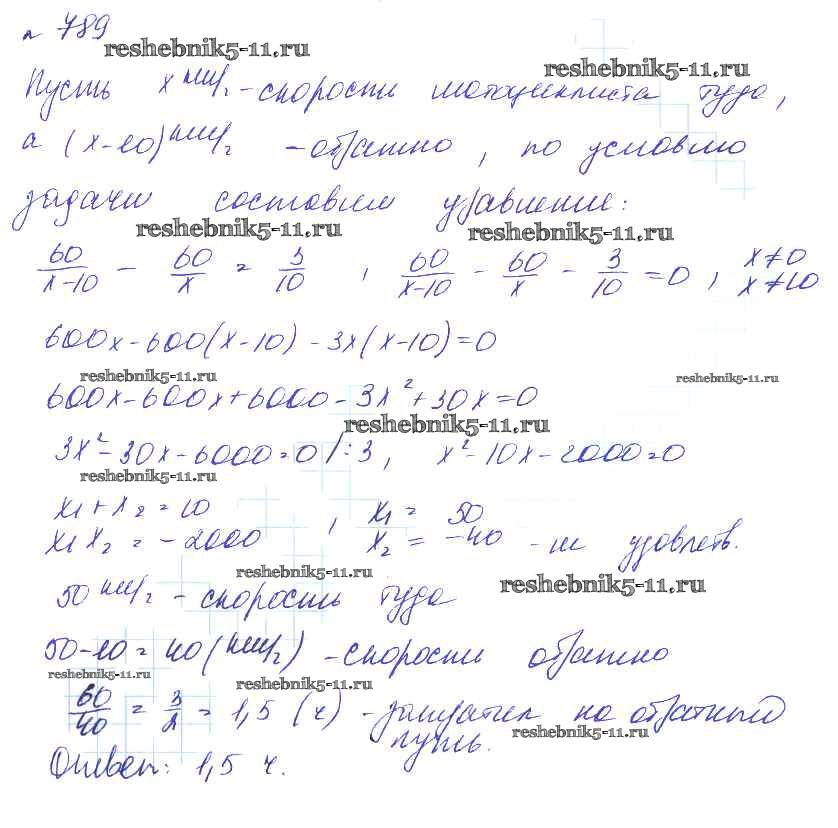 № 789
reshebnik5-11.ru
reshebnik5-11.ru
Пусть x км/ч - скорость мотоциклиста туда,
а (x-10) км/ч - обратно, по условию
задачи составим уравнение:
reshebnik5-11.ru
reshebnik5-11.ru
60/(x-10) - 60/x = 3/10, 60/(x-10) - 60/x - 3/10 = 0, x≠0 x≠10
600x-600(x-10)-3x(x-10)=0
reshebnik5-11.ru
reshebnik5-11.ru
600x-600x+6000-3x²+30x=0
reshebnik5-11.ru
3x²-30x-6000=0 /:3, x²-10x-2000=0
reshebnik5-11.ru
x₁+x₂=10, x₁= 50
x₁x₂=-2000 x₂= -40 - не удовлетв.
reshebnik5-11.ru
reshebnik5-11.ru
50 км/ч - скорость туда
50-10=40(км/ч) - скорость обратно
reshebnik5-11.ru
reshebnik5-11.ru
60/40 = 3/2 = 1,5 (ч) - затратил на обратный
путь.
reshebnik5-11.ru
Ответ: 1,5 ч.